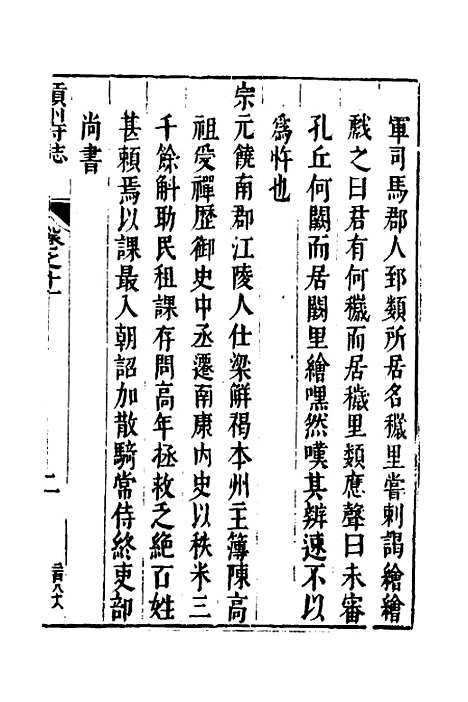 軍司馬郡人郅類所居名穢里嘗刺謁繪繪
戲之曰君有何穢而居穢里類應聲曰未審
孔丘何闕而居闕里繪嘿然嘆其辨速不以
爲忤也
宗元饒南郡江陵人仕梁解褐本州主簿陳高
祖受禪歷御史中丞遷南康内史以秩米三
千餘斛助民租課存問高年拯救乏絶百姓
甚頼焉以課最入朝詔加散騎常侍終吏部
尚書
府志
卷之十一
二